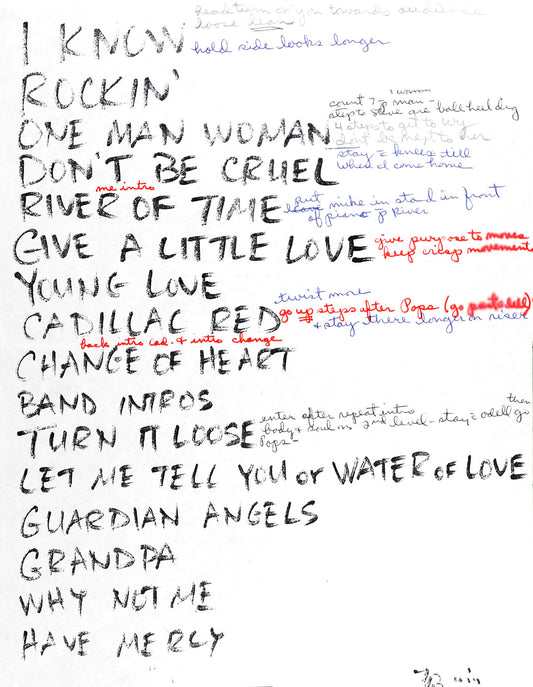 head turn on you towards audience
loose lean
I KNOW
hold side looks longer
ROCKIN'
1 woman
count 7 man -
step to Steve are ball heel dig
ONE MAN WOMAN
4 steps to get to Wy
dont be next to her
DON'T BE CRUEL
stay = knees till
when I come home
me intro
RIVER OF TIME
put
leave mike in stand in front
of piano p River
GIVE A LITTLE LOVE
give purpose to moves
keep crisp movements
YOUNG LOVE
twist more
CADILLAC RED
go up steps after Pops (go
& stay there longer on riser
back intro cad. & intro change
CHANGE OF HEART
BAND INTROS
enter after repeat intro
then
body & soul on 2nd level - stay = odell go
TURN IT LOOSE
Pops -
LET ME TELL YOU or WATER of LOVE
GUARDIAN ANGELS
GRANDPA
WHY NOT ME
HAVE MERCY